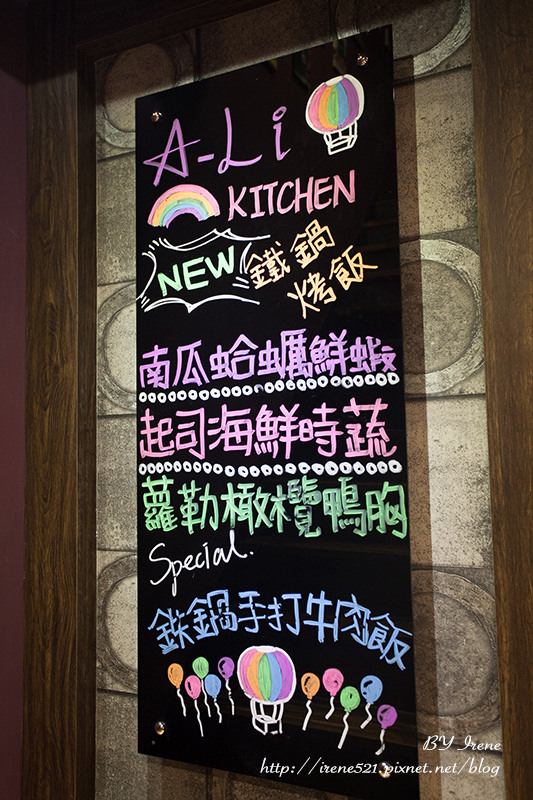 A-Li
KITCHEN
NEW 鐵鍋
烤飯
南瓜蛤蠣鮮蝦
起司海鮮時蔬
蘿勒橄欖鴨胸
Special.
鉄鍋手打牛肉飯
BY Irene
http://irene521.pixnet.net/blog